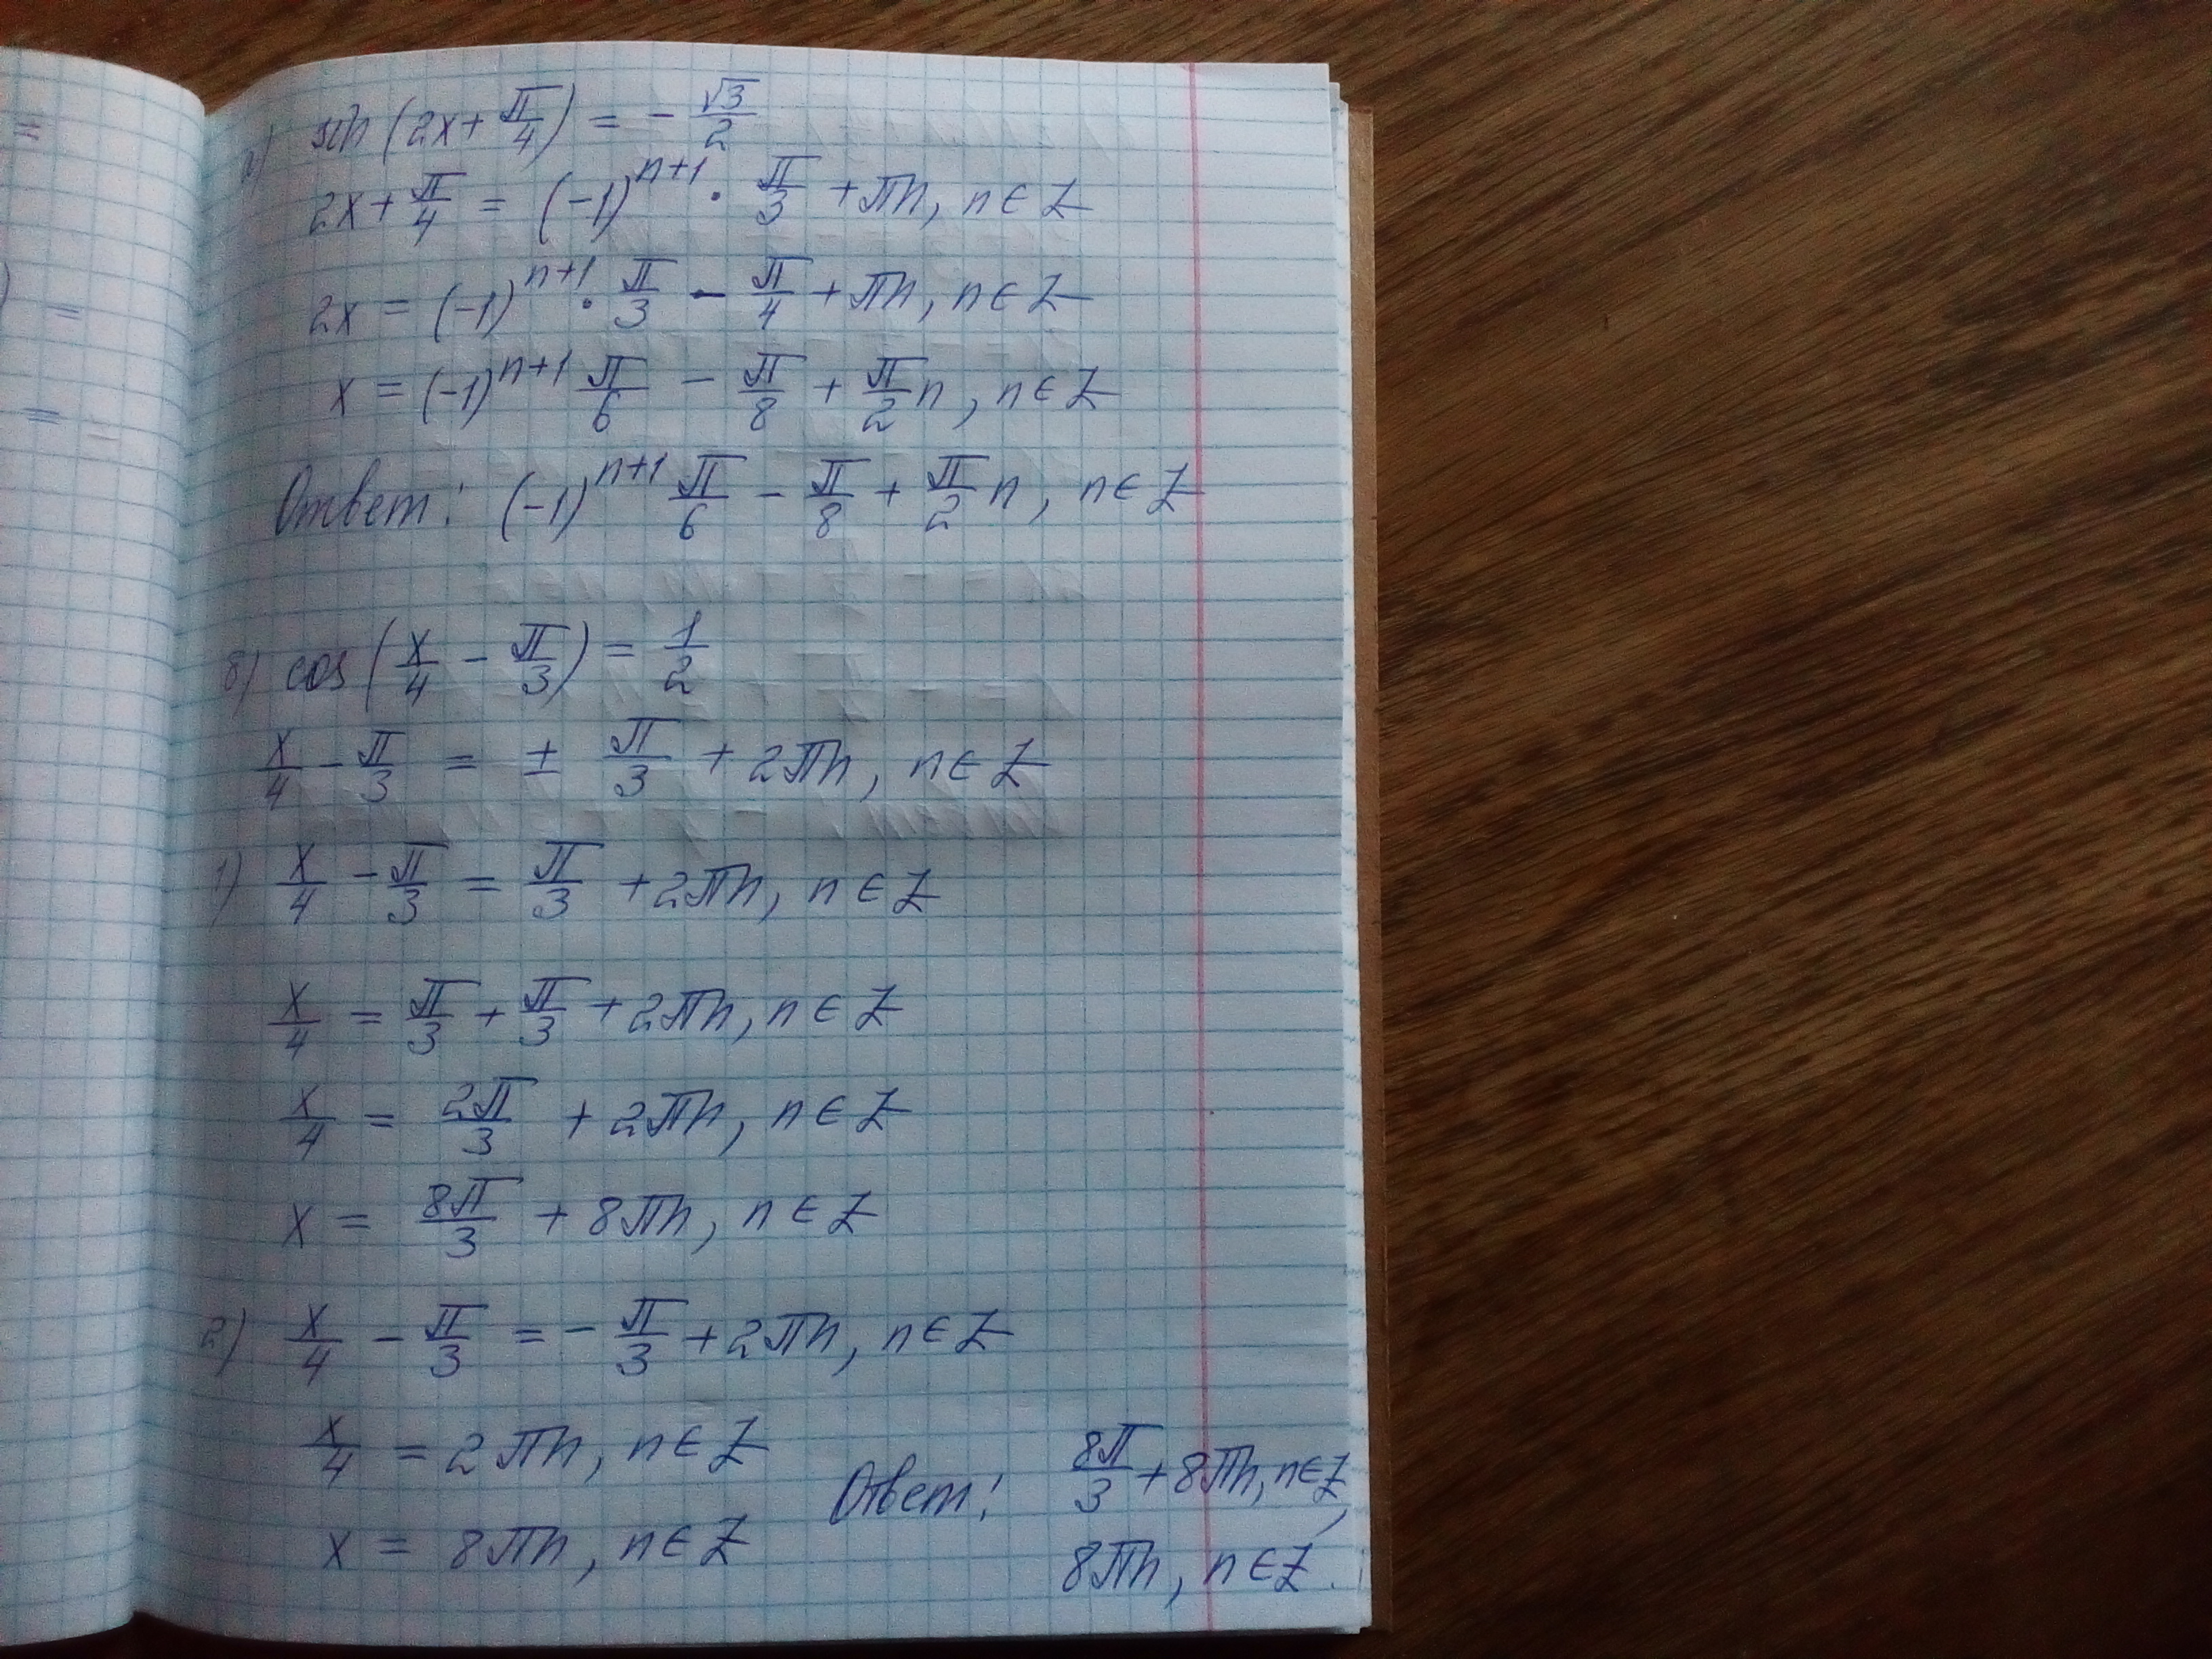 =
) =
= -
а) sin (2x + π/4) = - √3/2
2x + π/4 = (-1)^(n+1) · π/3 + πn, n ∈ Z
2x = (-1)^(n+1) · π/3 - π/4 + πn, n ∈ Z
x = (-1)^(n+1) π/6 - π/8 + π/2 n, n ∈ Z
Ответ: (-1)^(n+1) π/6 - π/8 + π/2 n, n ∈ Z
б) cos (x/4 - π/3) = 1/2
x/4 - π/3 = ± π/3 + 2πn, n ∈ Z
1) x/4 - π/3 = π/3 + 2πn, n ∈ Z
x/4 = π/3 + π/3 + 2πn, n ∈ Z
x/4 = 2π/3 + 2πn, n ∈ Z
x = 8π/3 + 8πn, n ∈ Z
2) x/4 - π/3 = - π/3 + 2πn, n ∈ Z
x/4 = 2πn, n ∈ Z
x = 8πn, n ∈ Z
Ответ: 8π/3 + 8πn, n ∈ Z,
8πn, n ∈ Z.